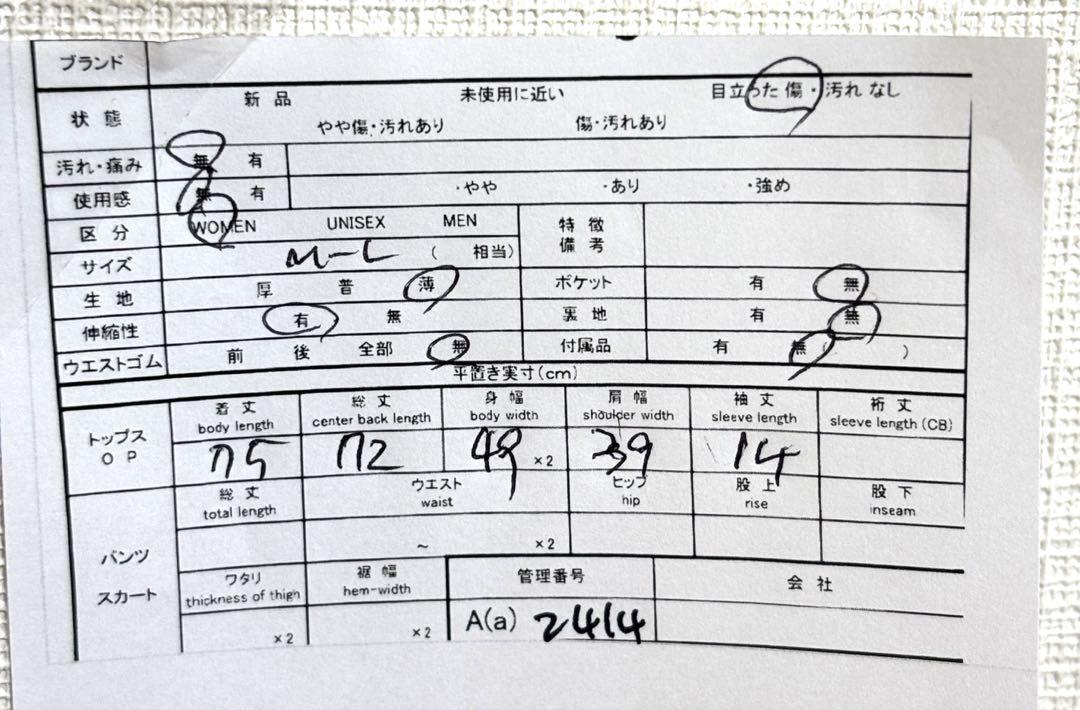 ブランド
状態 新品 未使用に近い 目立った傷・汚れなし
やや傷・汚れあり 傷・汚れあり
汚れ・痛み 無 有
使用感 無 有 ・やや ・あり ・強め
区分 WOMEN UNISEX MEN 特徴備考
サイズ M-L ( 相当)
生地 厚 普 薄 ポケット 有 無
伸縮性 有 無 裏地 有 無
ウエストゴム 前 後 全部 無 付属品 有 無 ( )
平置き実寸(cm)
トップス OP
着丈 総丈 身幅 肩幅 袖丈 裄丈
body length center back length body width shoulder width sleeve length sleeve length (CB)
75 72 49 ×2 39 14
パンツ スカート
総丈 ウエスト ヒップ 股上 股下
total length waist hip rise inseam
~ ×2
ワタリ 裾幅 管理番号 会社
thickness of thigh hem-width
×2 ×2 A(a) 2414